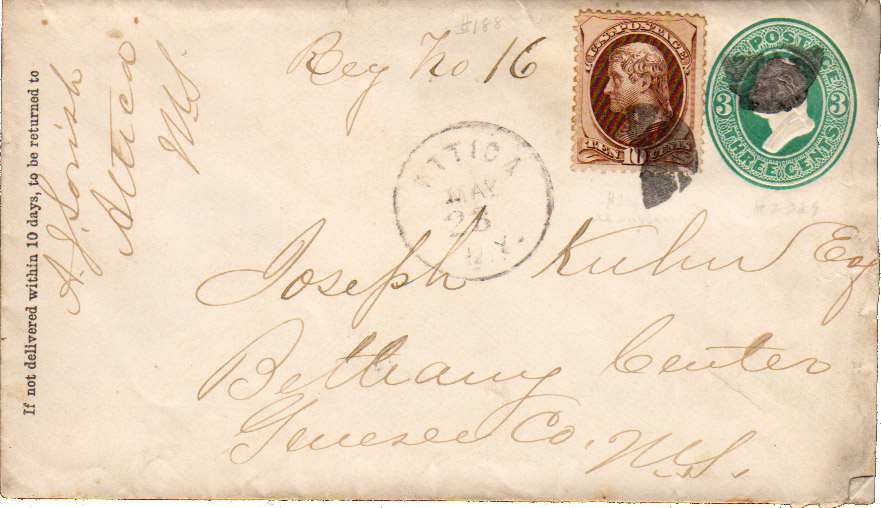 #188
Reg No 16
U.S. POSTAGE
TEN 10 CENTS
U.S. POSTAGE
3 3
THREE CENTS
ATTICA
MAY
N.Y.
If not delivered within 10 days, to be returned to
Attica
N.Y.
Joseph Kuhn Esq
Bethany Center
Genesee Co. N.Y.